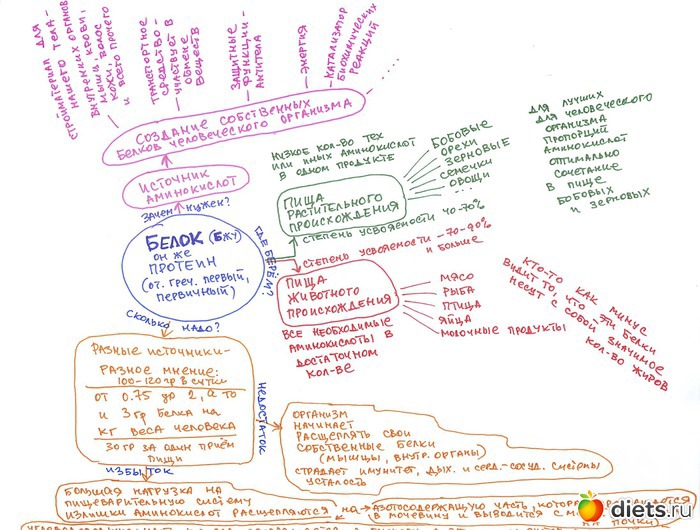 СТРОЙМАТЕРИАЛ ДЛЯ
НАШЕГО ТЕЛА-
ВНУТР. ОРГАНОВ
МЫШЦ, КРОВИ,
КОЖИ, ВОЛОС
И ВСЕГО ПРОЧЕГО
ТРАНСПОРТНОЕ
СРЕДСТВО -
УЧАСТВУЕТ В
ОБМЕНЕ
ВЕЩЕСТВ
ЗАЩИТНЫЕ
ФУНКЦИИ-
АНТИТЕЛА
ЭНЕРГИЯ
КАТАЛИЗАТОР
БИОХИМИЧЕСКИХ
РЕАКЦИЙ
СОЗДАНИЕ СОБСТВЕННЫХ
БЕЛКОВ ЧЕЛОВЕЧЕСКОГО ОРГАНИЗМА
ИСТОЧНИК
АМИНОКИСЛОТ
ЗАЧЕМ НУЖЕН?
БЕЛОК (БЖУ)
ОН ЖЕ
ПРОТЕИН
(ОТ. ГРЕЧ. ПЕРВЫЙ,
ПЕРВИЧНЫЙ)
ГДЕ БЕРЁМ?
НИЗКОЕ КОЛ-ВО ТЕХ
ИЛИ ИНЫХ АМИНОКИСЛОТ
В ОДНОМ ПРОДУКТЕ
ПИЩА
РАСТИТЕЛЬНОГО
ПРОИСХОЖДЕНИЯ
СТЕПЕНЬ УСВОЯЕМОСТИ 40-70%
БОБОВЫЕ
ОРЕХИ
ЗЕРНОВЫЕ
СЕМЕЧКИ
ОВОЩИ
...
ДЛЯ ЛУЧШИХ
ДЛЯ ЧЕЛОВЕЧЕСКОГО
ОРГАНИЗМА
ПРОПОРЦИЙ
АМИНОКИСЛОТ
ОПТИМАЛЬНО
СОЧЕТАНИЕ
В ПИЩЕ
БОБОВЫХ
И ЗЕРНОВЫХ
СТЕПЕНЬ УСВОЯЕМОСТИ -70-90%
И БОЛЬШЕ
ПИЩА
ЖИВОТНОГО
ПРОИСХОЖДЕНИЯ
МЯСО
РЫБА
ПТИЦА
ЯЙЦА
МОЛОЧНЫЕ ПРОДУКТЫ
ВСЕ НЕОБХОДИМЫЕ
АМИНОКИСЛОТЫ В
ДОСТАТОЧНОМ
КОЛ-ВЕ
КТО-ТО КАК МИНУС
ВИДИТ ТО, ЧТО ЭТИ БЕЛКИ
НЕСУТ С СОБОЙ ЗНАЧИМОЕ
КОЛ-ВО ЖИРОВ
СКОЛЬКО НАДО?
РАЗНЫЕ ИСТОЧНИКИ-
РАЗНОЕ МНЕНИЕ:
100-120 ГР В СУТКИ
ОТ 0.75 ДО 2, А ТО
И 3 ГР БЕЛКА НА
КГ ВЕСА ЧЕЛОВЕКА
30 ГР ЗА ОДИН ПРИЁМ
ПИЩИ
НЕДОСТАТОК
ОРГАНИЗМ
НАЧИНАЕТ
РАСЩЕПЛЯТЬ СВОИ
СОБСТВЕННЫЕ БЕЛКИ
(МЫШЦЫ, ВНУТР. ОРГАНЫ)
СТРАДАЕТ ИМУНИТЕТ, ДЫХ. И СЕРД.-СОСУД. СИСТЕМЫ
УСТАЛОСТЬ
ИЗБЫТОК
БОЛЬШАЯ НАГРУЗКА НА
ПИЩЕВАРИТЕЛЬНУЮ СИСТЕМУ
ИЗЛИШКИ АМИНОКИСЛОТ РАСЩЕПЛЯЮТСЯ НА
АЗОТОСОДЕРЖАЩУЮ ЧАСТЬ, КОТОРАЯ
В МОЧЕВИНУ И ВЫВОДИТСЯ С
НА ПОЧКИ
diets.ru